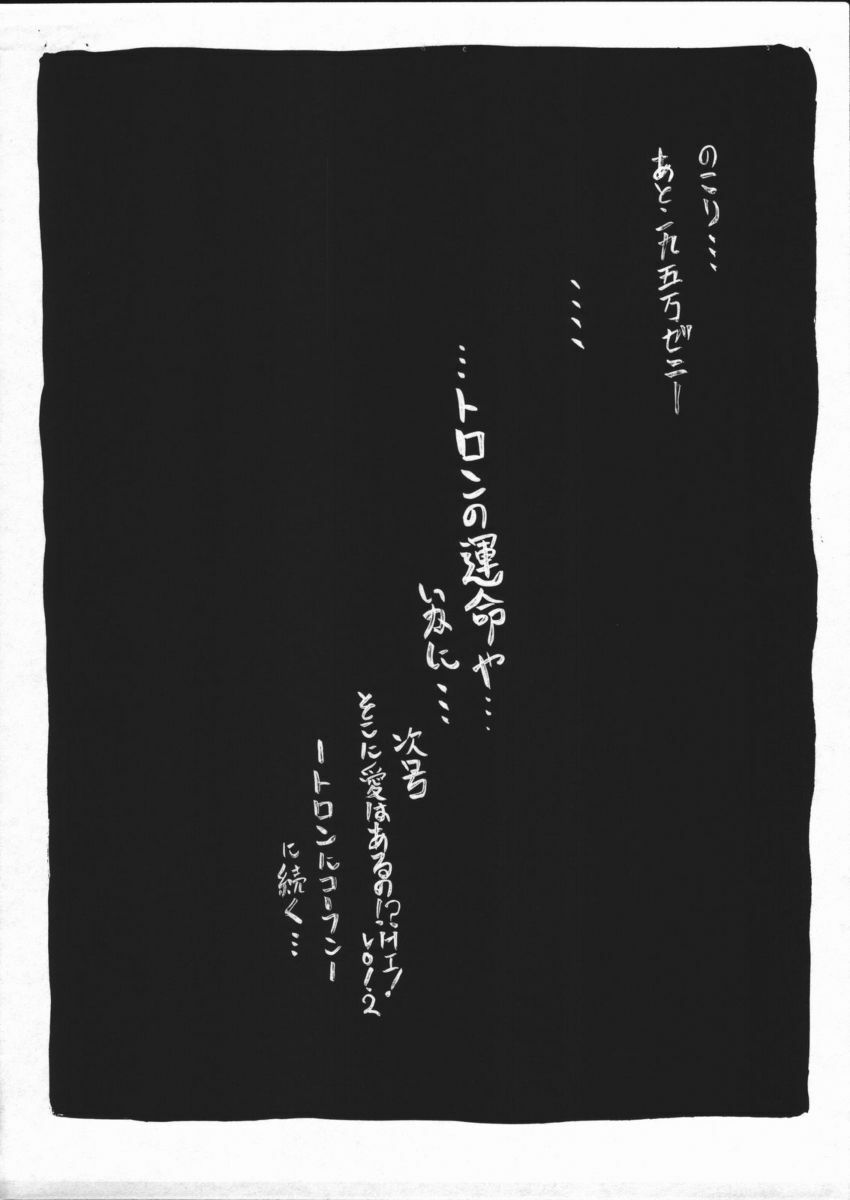 のこり…
あと・二九五万ゼニー
…………
…トロンの運命や…
いかに…
次号
そこに愛はあるの!?HI!
vol.2
ートロンにコーフンー
に続く…